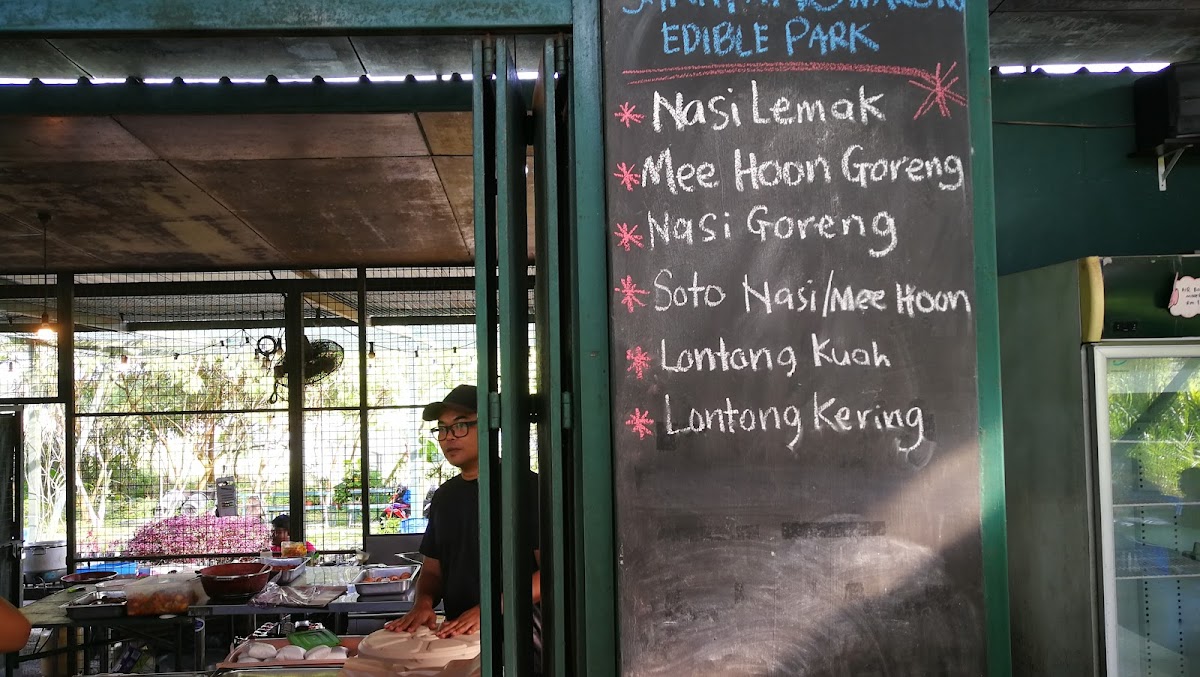 EDIBLE PARK
* Nasi Lemak
* Mee Hoon Goreng
* Nasi Goreng
* Soto Nasi/Mee Hoon
* Lontong Kuah
* Lontong Kering